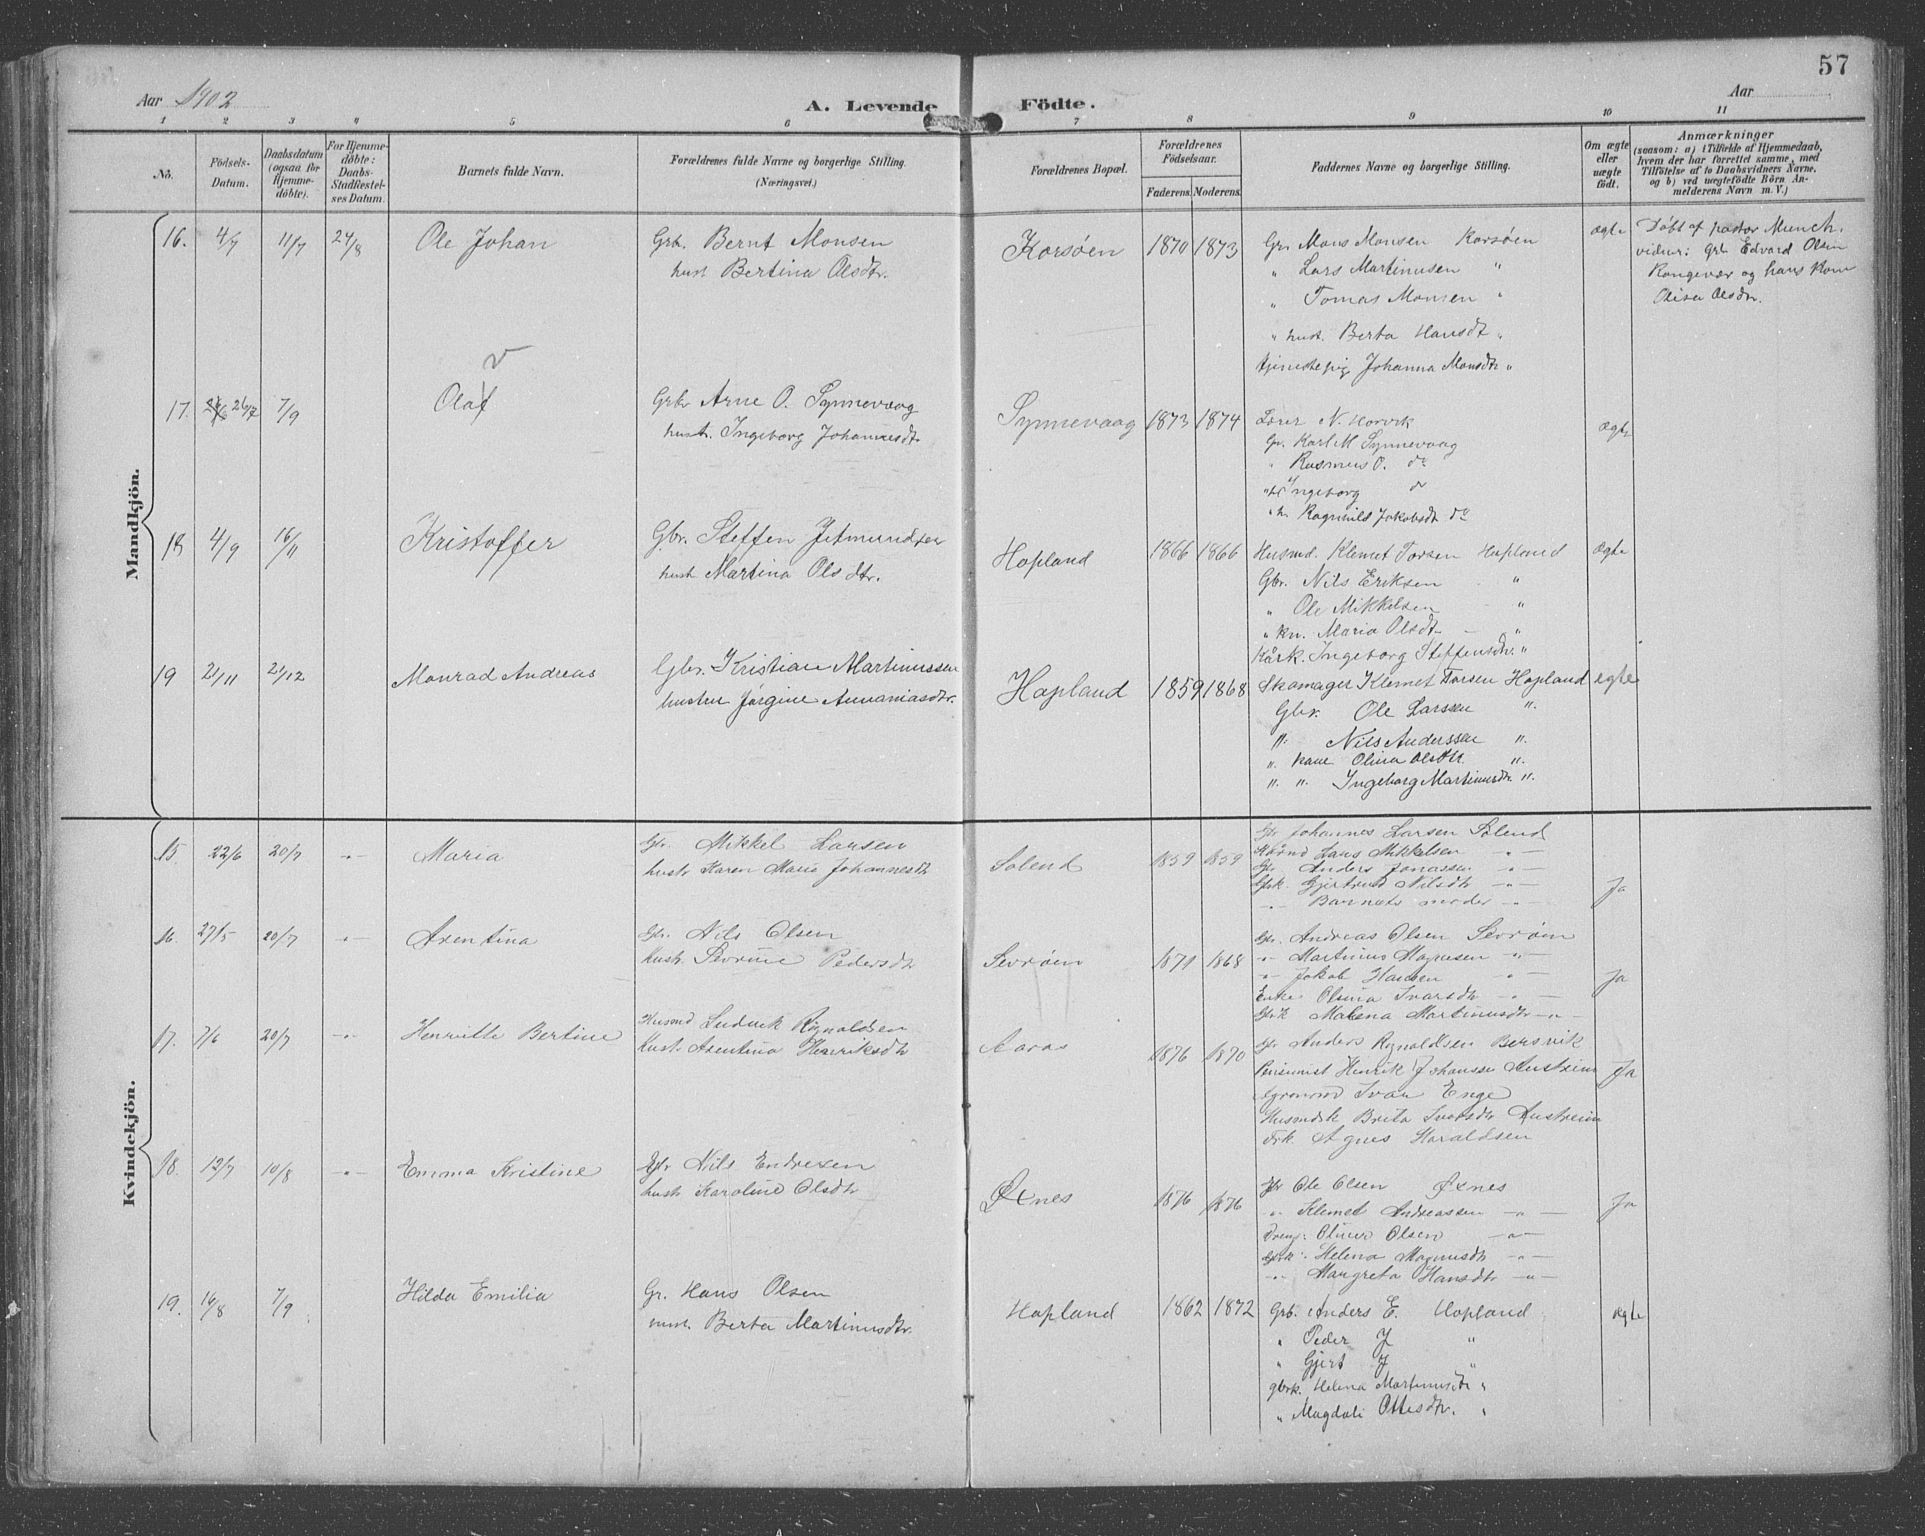 57
Aar 1902
A. Levende Födte.
Aar
1 2 3 4 5 6 7 8 9 10 11
No.
Födsels-Datum.
Daabsdatum (ogsaa for Hjemmedöbte).
For Hjemmedöbte: Daabs-Stadfæstelses Datum.
Barnets fulde Navn.
Forældrenes fulde Navne og borgerlige Stilling.
(Næringsvei.)
Forældrenes Bopæl.
Forældrenes Födselsaar.
Faderens. Moderens.
Faddernes Navne og borgerlige Stilling.
Om ægte eller uægte födt.
Anmærkninger
(saasom: a) i Tilfælde af Hjemmedaab,
hvem der har forrettet samme, med
Tilföielse af to Daabsvidners Navne.
og b) ved uægtefödte Börn An-
melderens Navn m. V.)
Mandkjön.
16. 4/7 11/7 24/8 Ole Johan
Grb. Bernt Monsen
hust Bertina Olsdtr.
Korsøen 1870 1873
Gr. Mons Monsen Korsøen
" Lars Martinusen "
" Tomas Monsen "
" hust. Berta Hansdt "
tjenestepig Johanna Monsdtr "
ægte
Døbt af pastor Munch.
vidner: Grb Edvard Olsen
Rongevær og hans kone
Olsdtr.
17. 26/7 7/9 Olaf
v
Grbr Arne O. Synnevaag
hustr. Ingeborg Johannesdtr
Synnevaag 1873 1874
Lærer N. Horvik
Gr. Karl M. Synnevaag
" Rasmus O. do
Ingeborg do
" h. Ragnhild Jakobsdt do
ægte
18 4/9 16/11 Kristoffer
Gbr. Steffen Jetmundsen
hust Martina Olsdtr.
Hopland 1866 1866
Husmd. Klemet Torsen Hopland
Gbr. Nils Eriksen "
" Ole Mikkelsen "
" kn. Maria Olsdtr "
Kårk. Ingeborg Steffensdtr. "
Ægte
19 21/11 21/12 Monrad Andreas
Gbr. Kristian Martinussen
hustru Jørgine Annaniasdtr.
Hopland 1859 1868
Skomager Klemet Torsen Hopland
Gbr. Ole Larssen ".
". Nils Anderssen ".
". kone Olina Olsdtr ".
". ". Ingeborg Martinusdtr ".
egte
Kvindekjön.
15. 22/6 20/7 -"- Maria
Gbr. Mikkel Larsen
hustr Karen Marie Johannesdtr
Solend 1859 1859
Gbr Johannes Larsen Solend
Lars Mikkelsen -"-
Gbr Anders Jonassen -"-
Gbrk. Gjertrud Nilsdtr -"-
-"- Barnets moder -"-
Ja
16. 27/5 20/7 -"- Axentina
Gbr. Nils Olsen
hustr. Sevrine Pedersdtr
Sevrøen 1871 1868
Gbr. Andreas Olsen Sevrøen
-"- Martinus Magnesen -"-
-"- Jakob Hansen -"-
Enke Olsina Ivarsdtr -"-
Gbrk Malena Martinusdtr -"-
Ja
17. 7/6 20/7 -"- Henriette Bertine
Husmd Ludvik Rognaldsen
Hustr. Axentina Henriksdtr
Aaras 1876 1870
Gbr Anders Rognaldsen Bersvik
Pensionist Henrik Johanssen Austreim
Ivar Enge
Husmdsk Brita Ivarsdtr Austreim
Frk Agnes Haraldsen
Ja
18. 12/7 10/8 -"- Emma Kristine
Gbr Nils Endresen
hustr Karoline Olsdtr
Øxnes 1876 1876
Gbr Ole Olsen Øxnes
-"- Klemet Andreassen -"-
Dreng: Oliver Olsen -"-
Gbrk: Helena Magnusdtr -"-
-"- Margreta Hansdtr -"-
Ja
19. 16/8 7/9 Hilda Emilia
Gr. Hans Olsen
hust. Berta Martinusdtr.
Hopland 1862 1872
Grb. Anders E. Hopland
" Peder J "
" Gjert J "
gbrk. Helena Martinusdtr "
" Magdali Ottesdtr. "
ægte